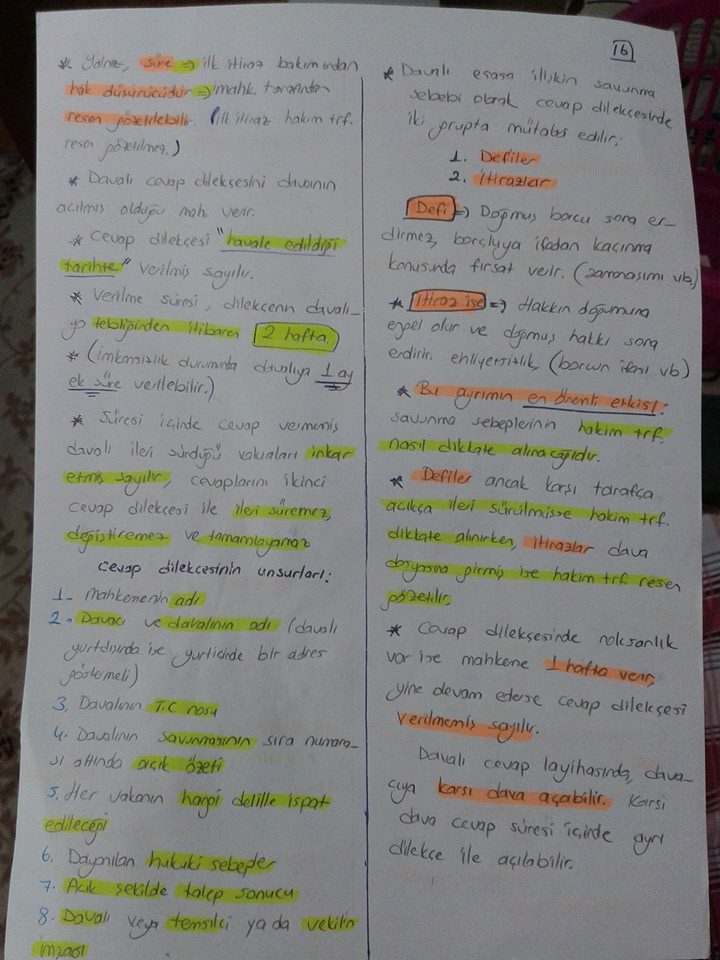 16
* Yalnız, süre => ilk itiraz bakımından
hak düşürücüdür => mahk. tarafından
resen gözetilebilir. (ilk itiraz hakim trf.
resen gözetilmez.)
* Davalı cevap dilekçesini davanın
açılmış olduğu mah. verir.
* Cevap dilekçesi "havale edildiği
tarihte" verilmiş sayılır.
* Verilme süresi, dilekçenin davalı-
ya tebliğinden itibaren 2 hafta
* (İmkansızlık durumunda davalıya 1 ay
ek süre verilebilir.)
* Süresi içinde cevap vermemiş
davalı ileri sürdüğü vakıaları inkar
etmiş sayılır, cevaplarını ikinci
cevap dilekçesi ile ileri süremez,
değiştiremez ve tamamlayamaz
Cevap dilekçesinin unsurları:
1- Mahkemenin adı
2- Davacı ve davalının adı (davalı
yurtdışında ise yurtiçinde bir adres
göstermeli)
3. Davalının T.C nosu
4. Davalının savunmasının sıra numara-
sı altında açık özeti
5. Her vakanın hangi delille ispat
edileceği
6. Dayanılan hukuki sebepler
7. Açık şekilde talep sonucu
8. Davalı veya temsilci ya da vekilin
imzası
* Davalı esasa ilişkin savunma
sebebi olarak cevap dilekçesinde
iki grupta mütalaa edilir:
1. Defiler
2. İtirazlar
Defi => Doğmuş borcu sona er-
dirmez, borçluya ifadan kaçınma
konusunda fırsat verir. (zamanaşımı vb)
* İtiraz ise => Hakkın doğumuna
engel olur ve doğmuş hakkı sona
erdirir. ehliyetsizlik, (borcun ifası vb)
* Bu ayrımın en önemli etkisi:
savunma sebeplerinin hakim trf.
nasıl dikkate alınacağıdır.
* Defiler ancak karşı tarafça
açıkça ileri sürülmüşse hakim trf.
dikkate alınırken, itirazlar dava
dosyasına girmiş ise hakim trf resen
gözetilir.
* Cevap dilekçesinde noksanlık
var ise mahkeme 1 hafta verir,
yine devam ederse cevap dilekçesi
verilmemiş sayılır.
Davalı cevap layihasında, dava-
cıya karşı dava açabilir. Karşı
dava cevap süresi içinde ayrı
dilekçe ile açılabilir.